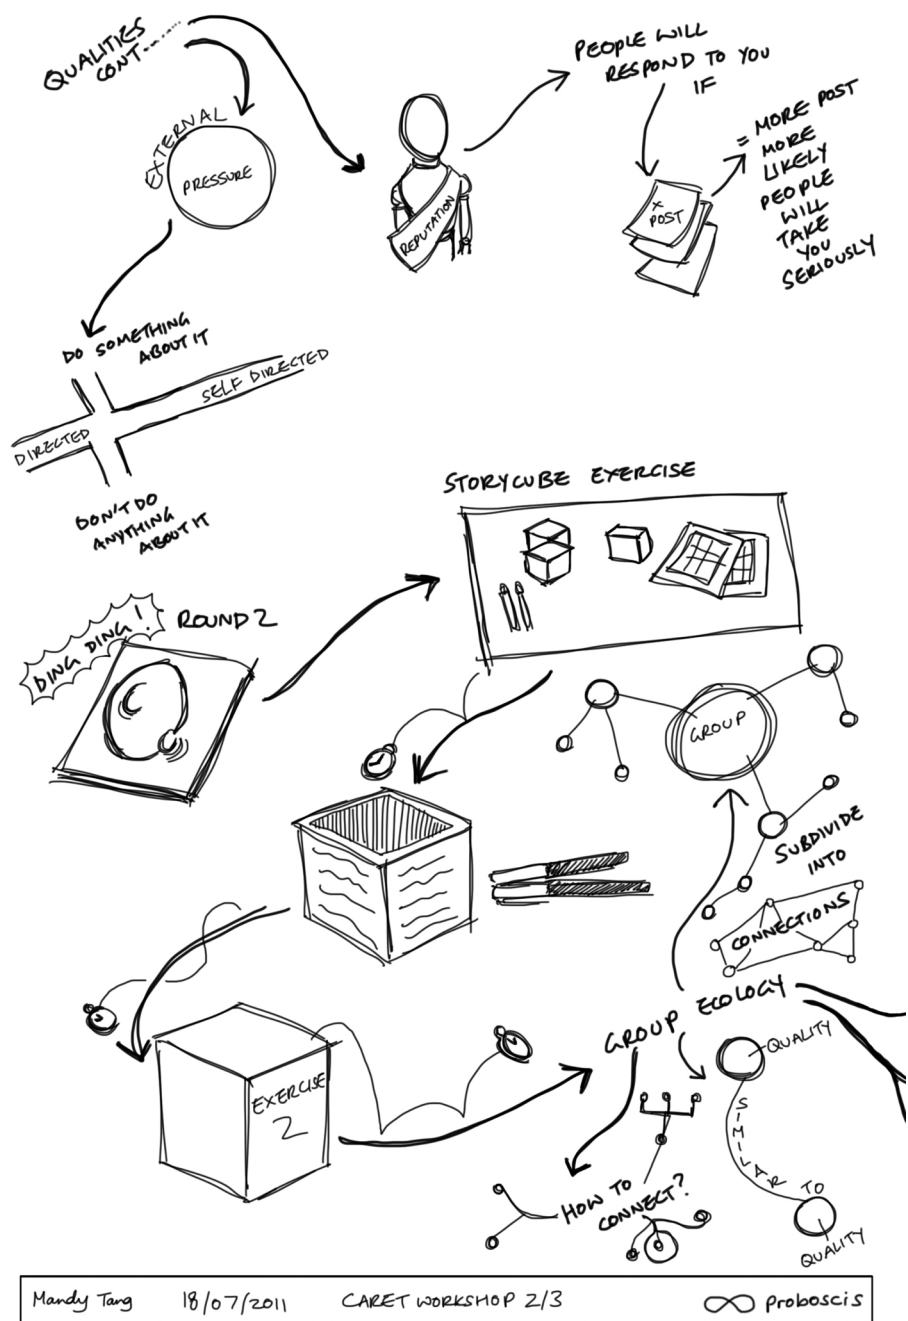 QUALITIES
CONT......
EXTERNAL
PRESSURE
REPUTATION
PEOPLE WILL
RESPOND TO YOU
IF
x
POST
= MORE POST
MORE
LIKELY
PEOPLE
WILL
TAKE
YOU
SERIOUSLY
DO SOMETHING
ABOUT IT
SELF DIRECTED
DIRECTED
DON'T DO
ANYTHING
ABOUT IT
STORYCUBE EXERCISE
DING DING!
ROUND 2
GROUP
SUBDIVIDE
INTO
CONNECTIONS
GROUP ECOLOGY
EXERCISE
2
QUALITY
SIMILAR
TO
QUALITY
HOW TO
CONNECT?
Mandy Tang 18/07/2011 CARET WORKSHOP 2/3 proboscis